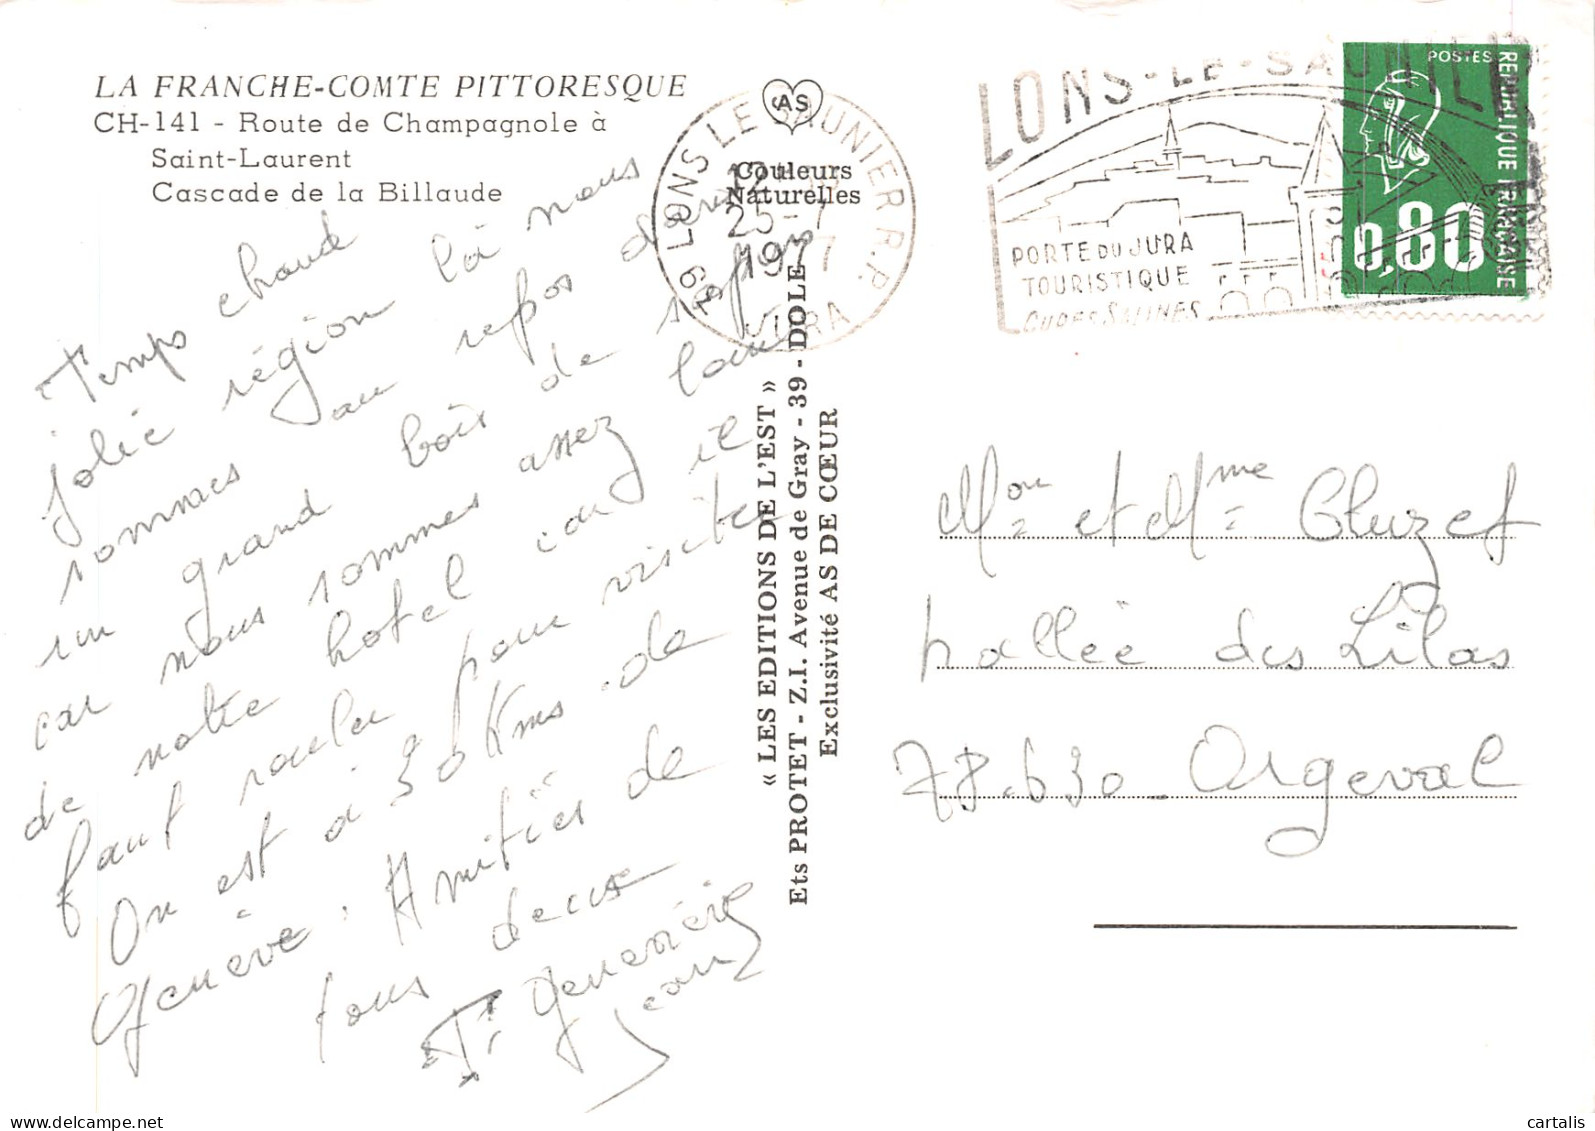 LA FRANCHE-COMTE PITTORESQUE
CH-141 - Route de Champagnole à
Saint-Laurent
Cascade de la Billaude
AS
Couleurs
Naturelles
LONS LE SAUNIER R.P.
25-7
1977
39 JURA
LONS-LE-SAUNIER
PORTE DU JURA
TOURISTIQUE
POSTES
REPUBLIQUE FRANCAISE
0,80
Temps chaud
jolie région là nous
sommes au repos dans
un grand bois de sapins
car nous sommes assez loin
de notre hotel car il
faut rouler pour visiter
On est à 30 Kms de
Genève. Amitiés de
tous deux
Geneviève
Jean
« LES EDITIONS DE L'EST »
Ets PROTET - Z.I. Avenue de Gray - 39 - DOLE
Exclusivité AS DE CŒUR
Mon et Mme Cluzef
allée des Lilas
78.630 - Orgeval
delcampe.net
cartalis